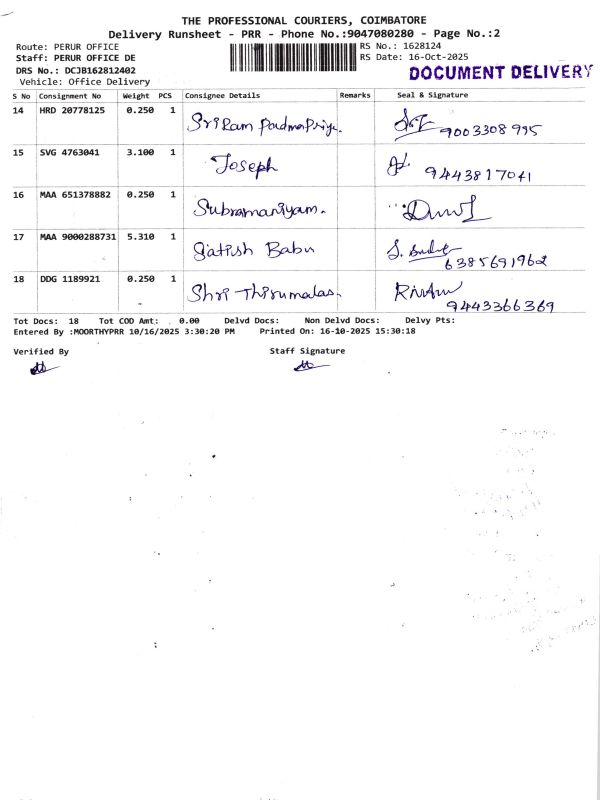 THE PROFESSIONAL COURIERS, COIMBATORE
Delivery Runsheet - PRR - Phone No.:9047080280 - Page No.:2
Route: PERUR OFFICE RS No.: 1628124
Staff: PERUR OFFICE DE RS Date: 16-Oct-2025
DRS No.: DCJB162812402 DOCUMENT DELIVERY
Vehicle: Office Delivery
S No Consignment No Weight PCS Consignee Details Remarks Seal & Signature
14 HRD 20778125 0.250 1 SriRam PadmaPriya. 9003308995
15 SVG 4763041 3.100 1 Joseph 9443817041
16 MAA 651378882 0.250 1 Subramaniyam.
17 MAA 9000288731 5.310 1 Satish Babu 6385691962
18 DDG 1189921 0.250 1 Shri Thirumalas. 9443366369
Tot Docs: 18 Tot COD Amt: 0.00 Delvd Docs: Non Delvd Docs: Delvy Pts:
Entered By :MOORTHYPRR 10/16/2025 3:30:20 PM Printed On: 16-10-2025 15:30:18
Verified By Staff Signature